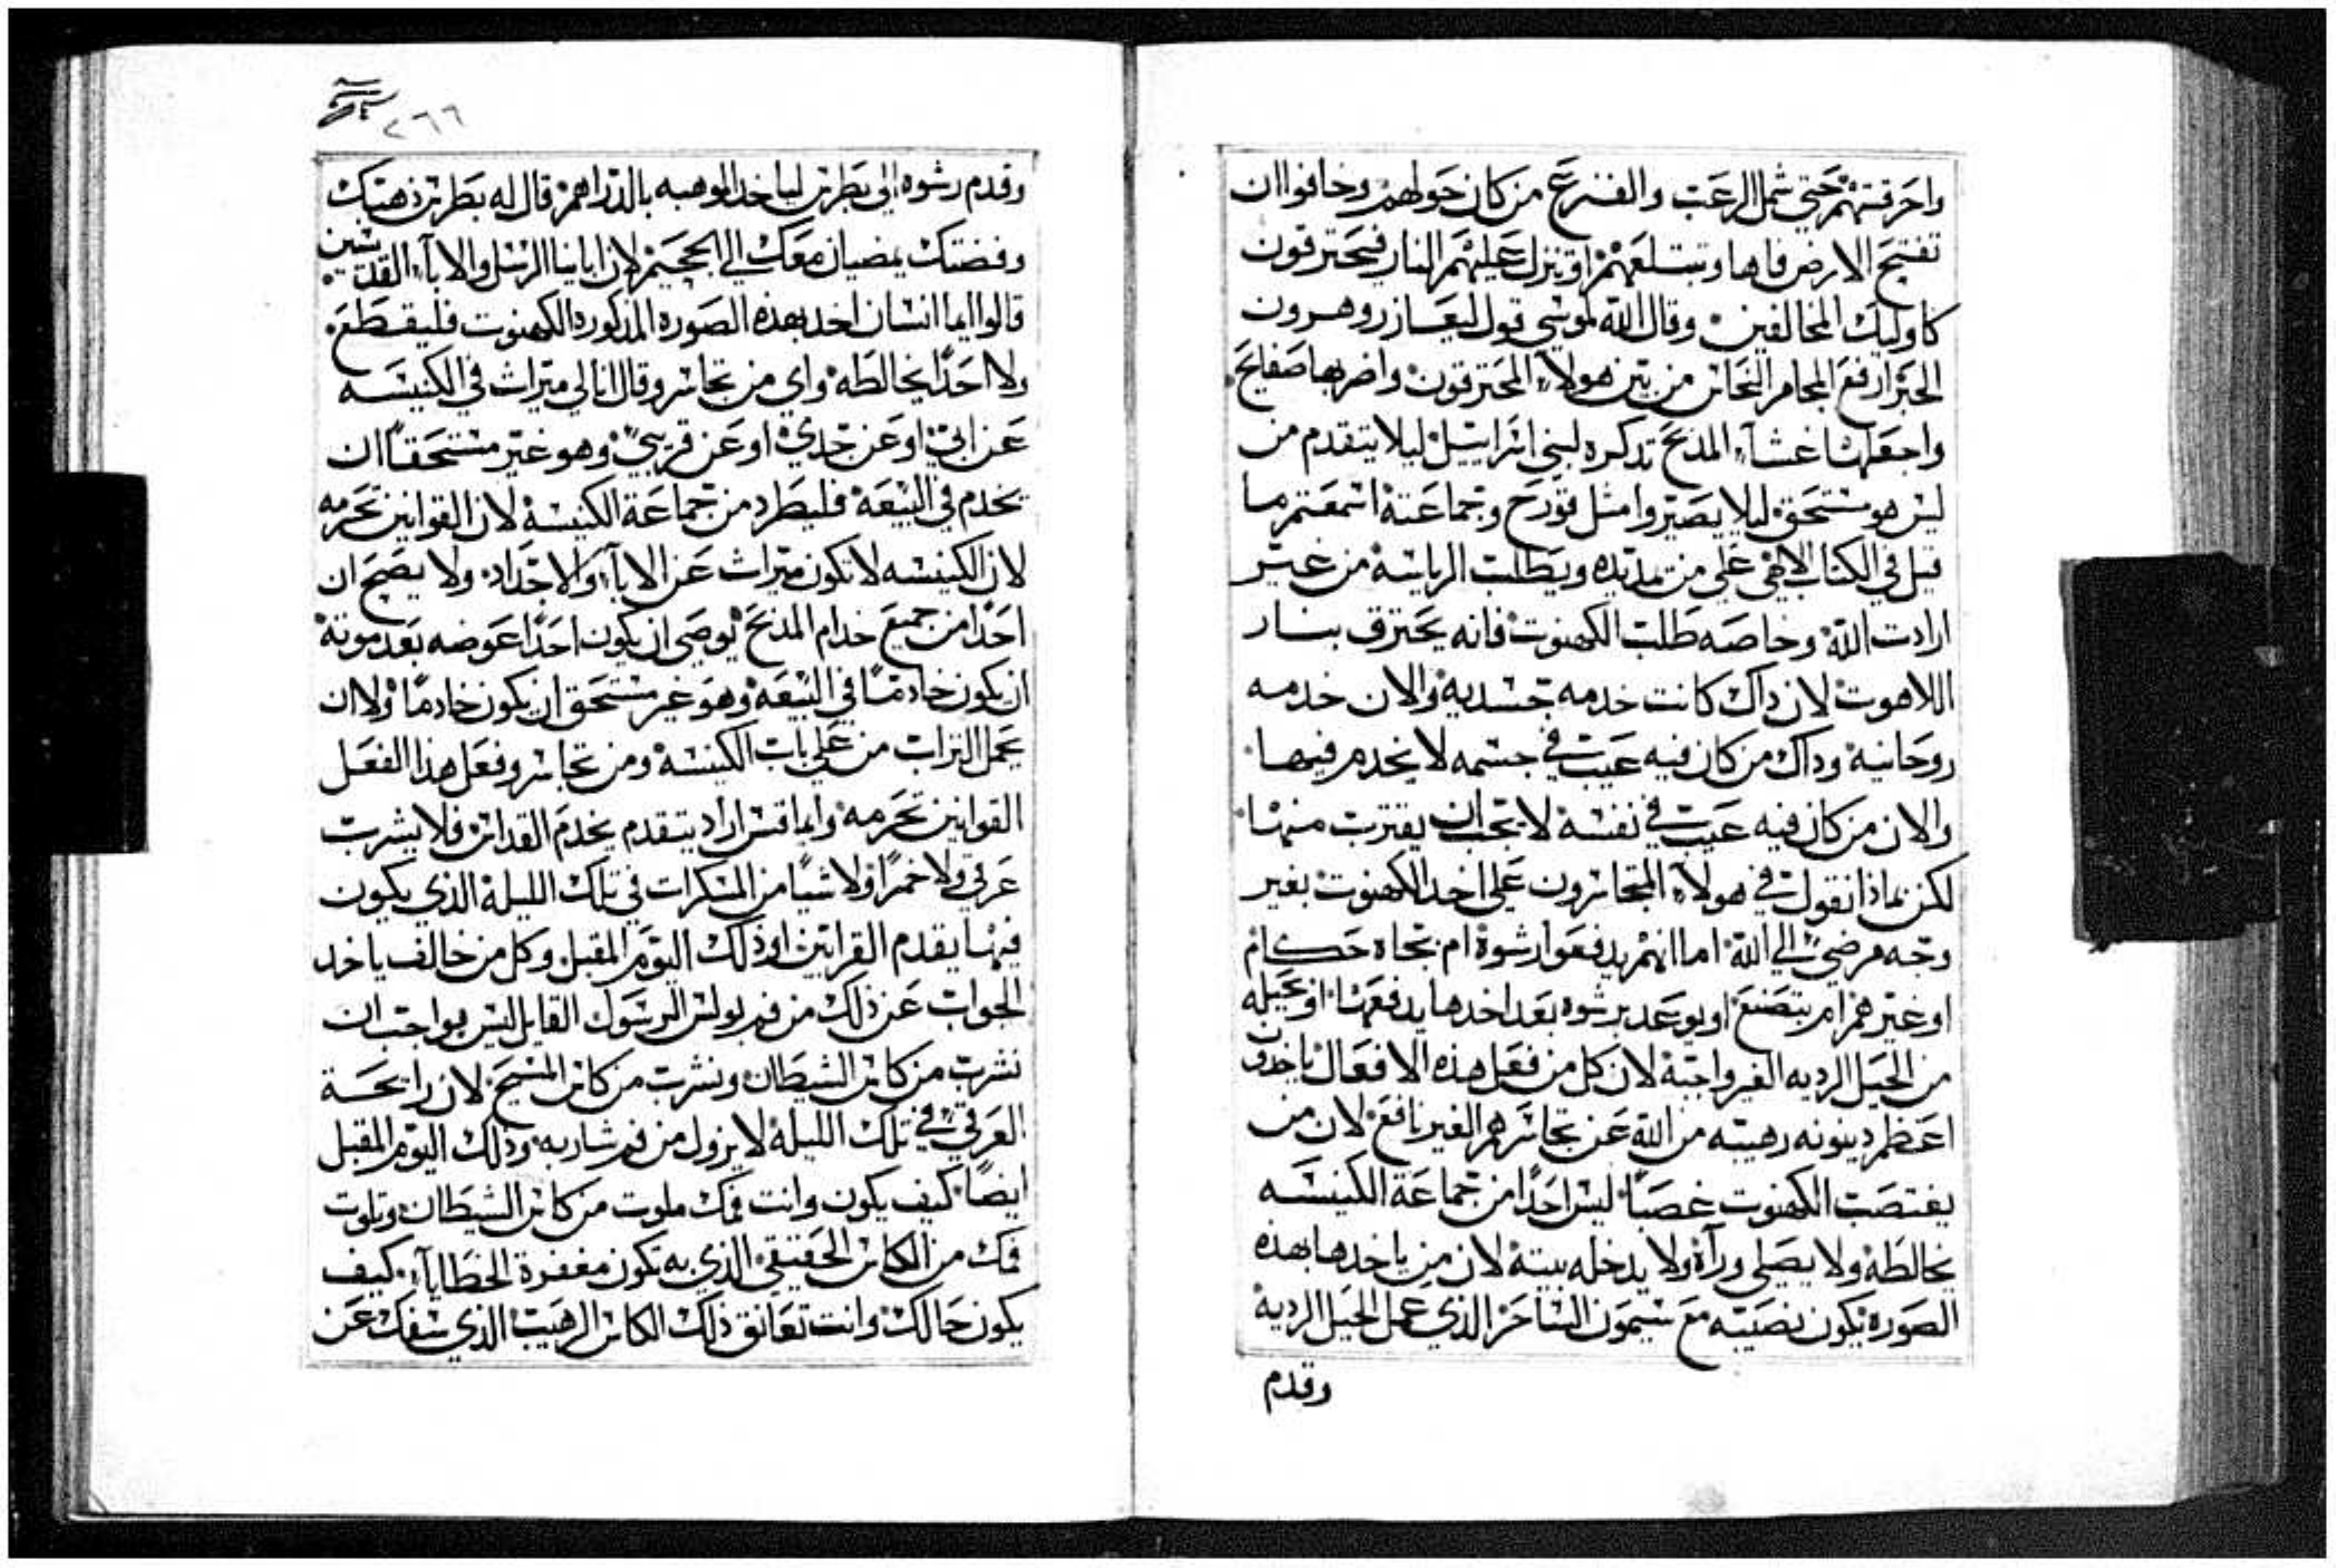 واحرقتهم حتي شمل الرعب والفزع من كان حولهم وخافوا ان
تفتح الارض فاها وتبتلعهم او تنزل عليهم النار فيحترقون
كاوليك المخالفين وقال الله لموسي قول ليعازر وهرون
الحبر ارفع المجامر النحاس من بين هولاء المحترقون واضربها صفايح
واجعلها غشاء المدبح تدكره لبني اسراييل ليلا يتقدم من
ليس هو مستحق ليلا يصيروا مثل قورح وجماعته اسمعتم ما
قيل في الكتاب الالاهي علي من يمد يده ويطلب الرياسه من غير
ارادت الله وخاصه طلب الكهنوت فانه يحترق بنار
اللاهوت لان داك كانت خدمه جسديه والان خدمه
روحانيه وداك من كان فيه عيب في جسمه لا يخدم فيها
والان من كان فيه عيب في نفسه لا يجب ان يقترب منها
لكن بماذا نقول في هولاء المتجاسرون علي اخد الكهنوت بغير
وجه مرضي الي الله اما انهم يدفعوا رشوة ام بجاه حكام
او غيرهم ام بتصنع او بوعد برشوه بعد اخدها يدفعها او بحيله
من الحيل الرديه الغير واجبه لان كل من فعل هذه الافعال ياخدون
اعظم دينونه رهيبه من الله عن تجاسرهم الغير نافع لان من
يغتصب الكهنوت غصبا ليس احدا من جماعة الكنيسه
يخالطه ولا يصلي وراه ولا يدخله بيته لان من ياخدها بهذه
الصوره يكون نصيبه مع سيمون الساحر الذي عمل الحيل الرديه
وقدم
٢٦٦
وقدم رشوه الي بطرس لياخد الموهبه بالدراهم قال له بطرس ذهبك
وفضتك يمضيان معك الي الجحيم لان اباينا الرسل والاباء القديسين
قالوا ايما انسان اخد بهذه الصوره المدكوره الكهنوت فليقطع
ولا احدا يخالطه واي من تجاسر وقال انا لي ميراث في الكنيسه
عن ابي او عن جدي او عن قريبي وهو غير مستحقا ان
يخدم في البيعه فليطرد من جماعة الكنيسه لان القوانين تحرمه
لان الكنيسه لا تكون ميراث عن الاباء والاجداد ولا يصح ان
احدا من جميع خدام المدبح يوصي ان يكون احدا عوضه بعد موته
ان يكون خادما في البيعه وهو غير مستحق ان يكون خادما ولا ان
يحمل التراب من علي باب الكنيسه ومن تجاسر وفعل هدا الفعل
القوانين تحرمه وايما قس اراد يتقدم يخدم القداس فلا يشرب
عرقي ولا خمرا ولا شيا من المسكرات في تلك الليله الذي يكون
فيها يقدم القرابين او ذلك اليوم المقبل وكل من خالف ياخد
الجواب عن ذلك من فم بولس الرسول القايل ليس بواجب ان
نشرب من كاس الشيطان ونشرب من كاس المسيح لان رايحة
العرقي في تلك الليله لا يزول من فم شاربه وذلك اليوم المقبل
ايضا كيف يكون وانت فمك ملوت من كاس الشيطان وتلوت
فمك من الكاس الحقيقي الذي به تكون مغفرة الخطاياء كيف
يكون حالك وانت تعانق ذلك الكاس الرهيب الذي سفك عن